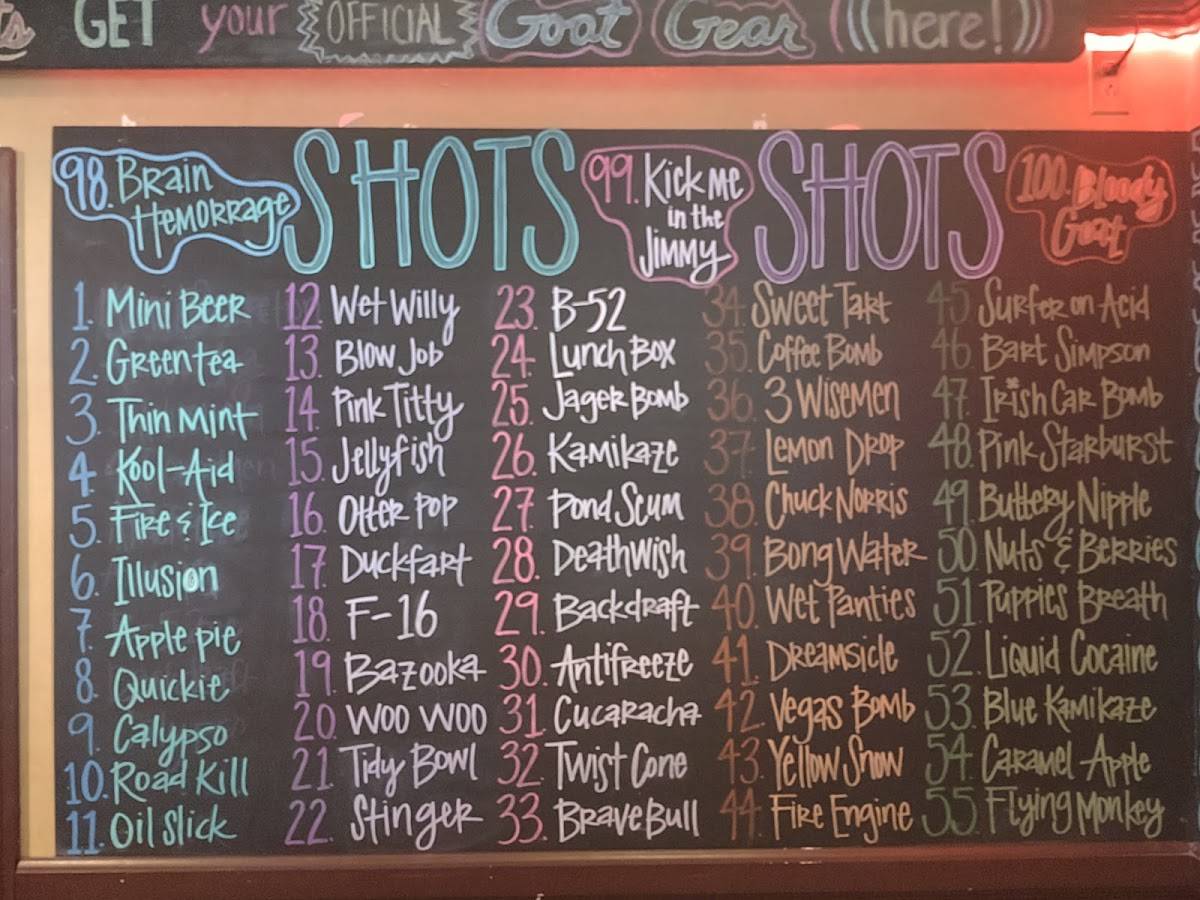 GET your OFFICIAL Goat Gear ((here!))
98. Brain Hemorrage
SHOTS
99. Kick me in the Jimmy
SHOTS
100. Bloody Goat
1. Mini Beer
2. Green tea
3. Thin Mint
4. Kool-Aid
5. Fire & Ice
6. Illusion
7. Apple pie
8. Quickie
9. Calypso
10. Road Kill
11. Oil Slick
12. Wet Willy
13. Blow Job
14. Pink Titty
15. Jellyfish
16. Otter Pop
17. Duckfart
18. F-16
19. Bazooka
20. Woo Woo
21. Tidy Bowl
22. Stinger
23. B-52
24. Lunch Box
25. Jager Bomb
26. Kamikaze
27. Pond Scum
28. Deathwish
29. Backdraft
30. Antifreeze
31. Cucaracha
32. Twist Cone
33. Brave Bull
34. Sweet Tart
35. Coffee Bomb
36. 3 Wisemen
37. Lemon Drop
38. Chuck Norris
39. Bong Water
40. Wet Panties
41. Dreamsicle
42. Vegas Bomb
43. Yellow Snow
44. Fire Engine
45. Surfer on Acid
46. Bart Simpson
47. Irish Car Bomb
48. Pink Starburst
49. Buttery Nipple
50. Nuts & Berries
51. Puppies Breath
52. Liquid Cocaine
53. Blue Kamikaze
54. Caramel Apple
55. Flying Monkey